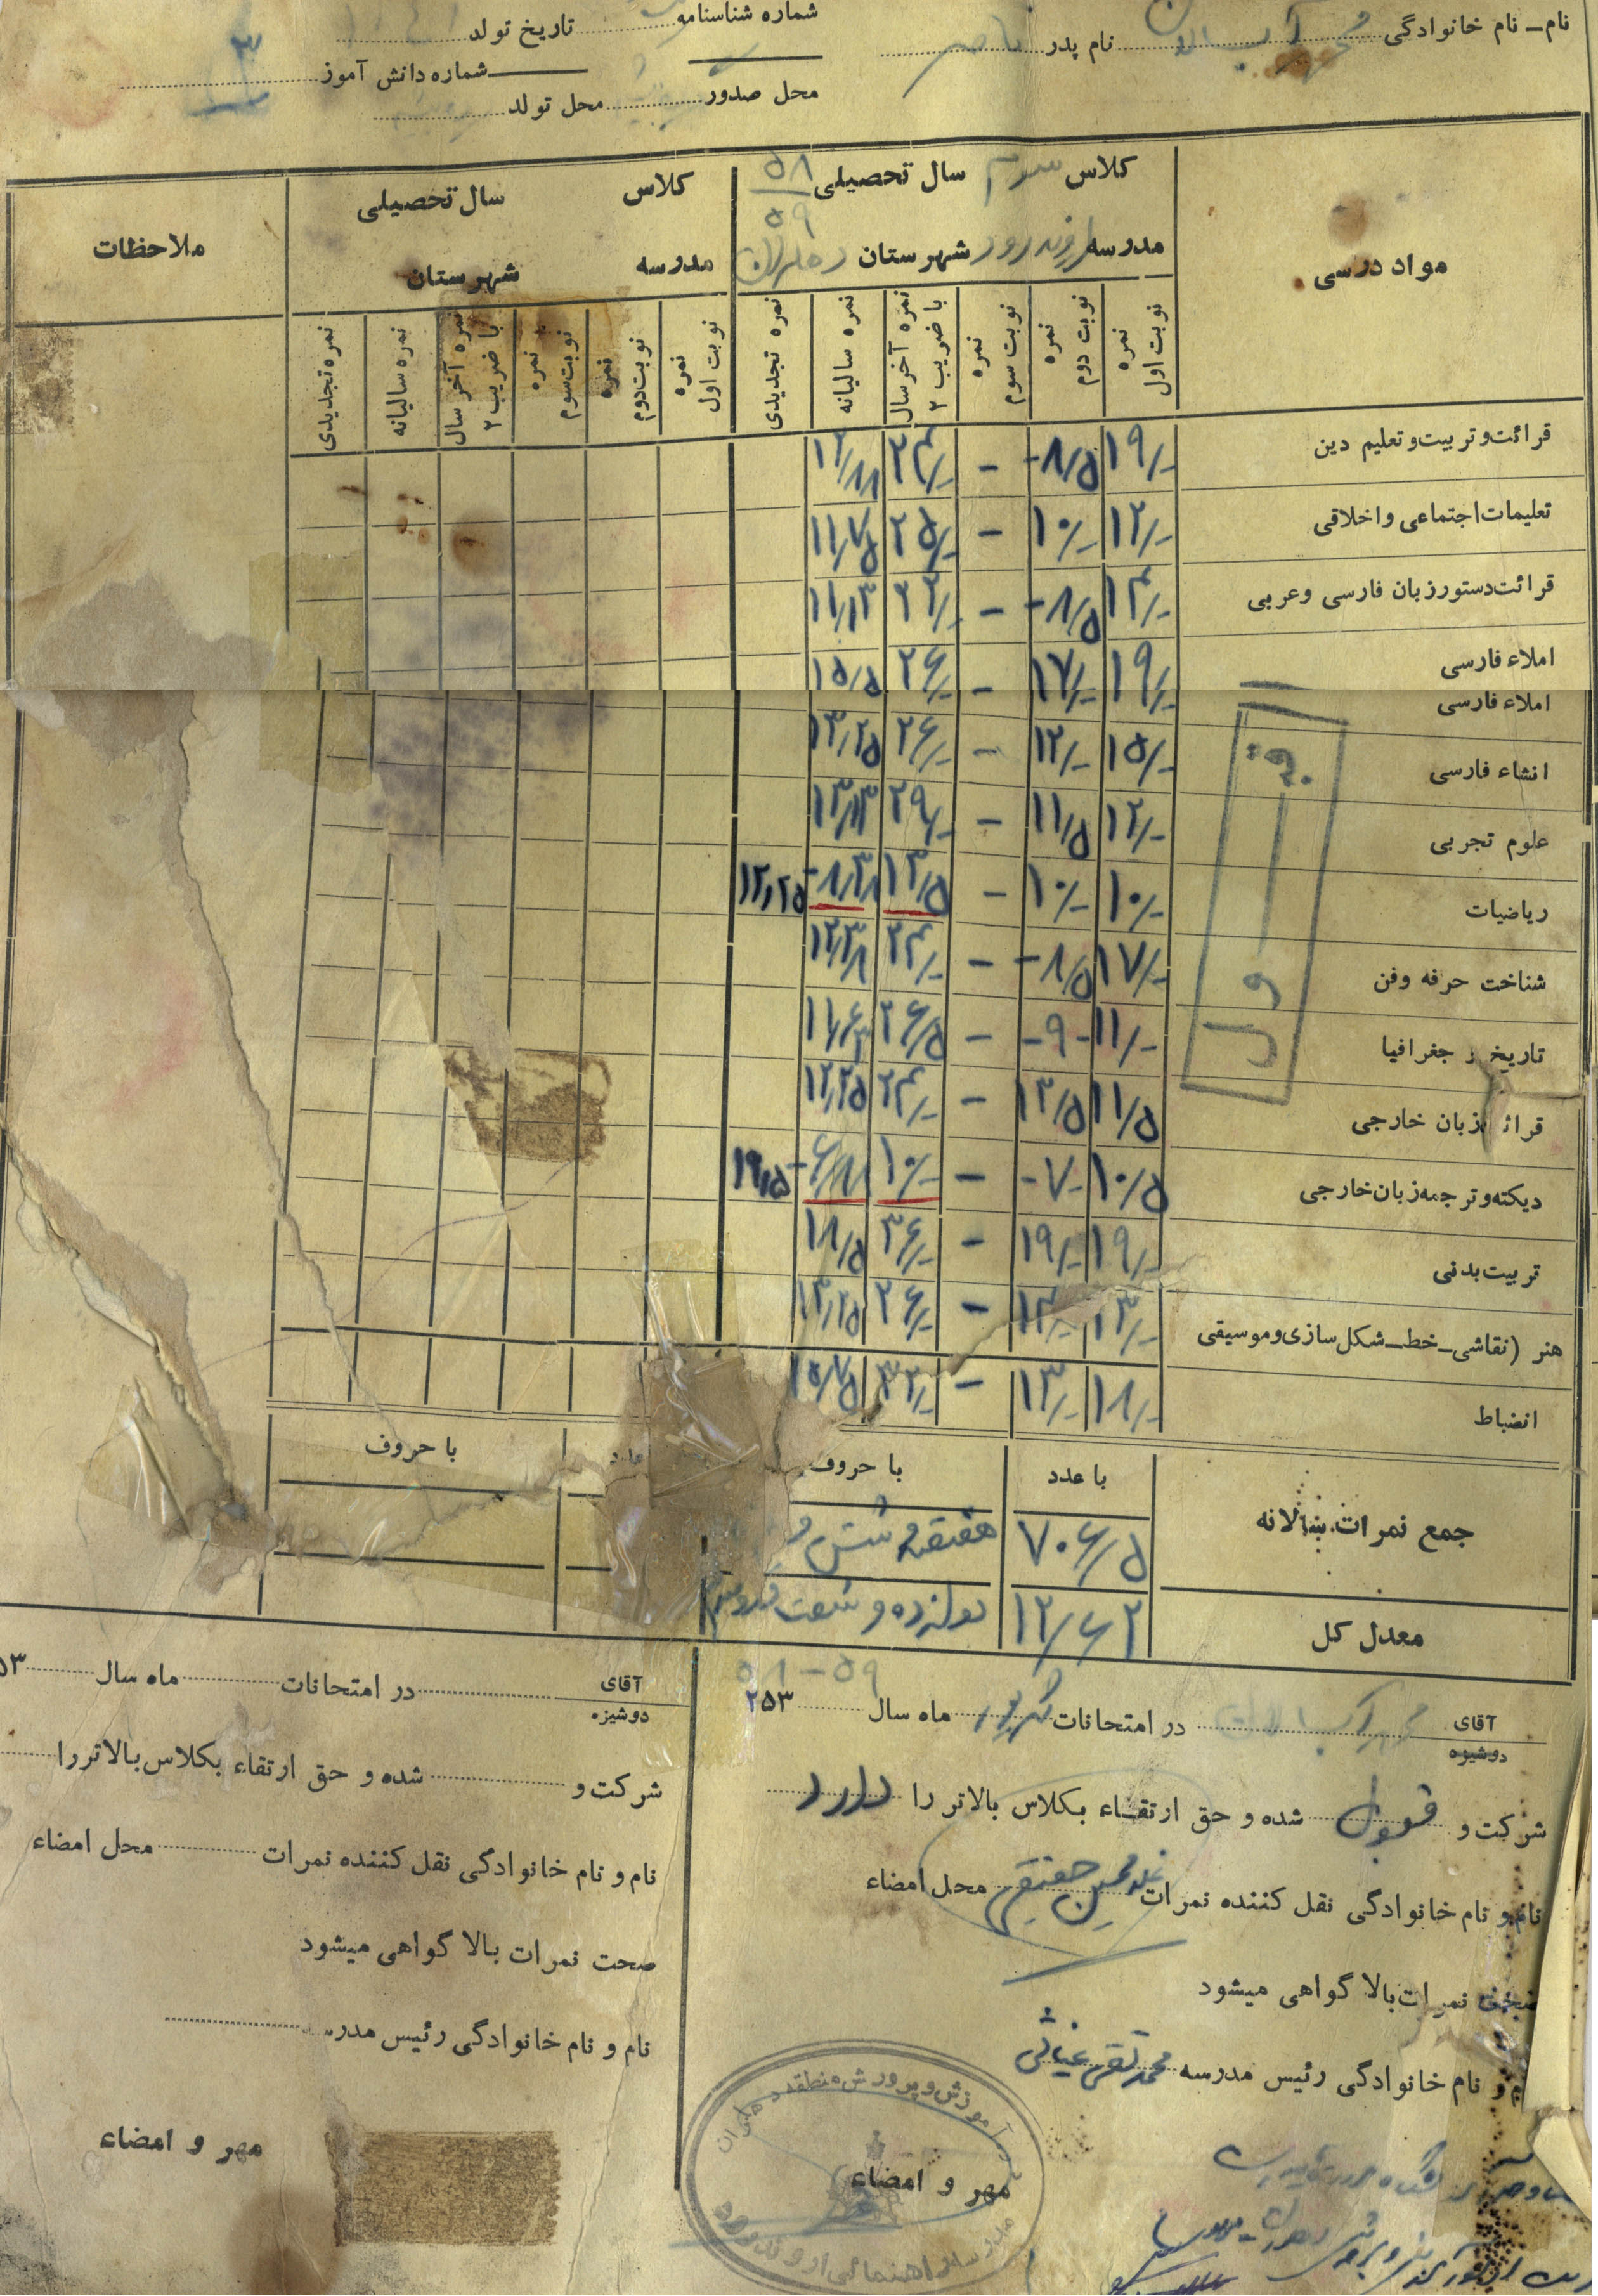 نام ـ نام خانوادگی نام پدر ناصر شماره شناسنامه تاریخ تولد
محل صدور محل تولد شماره دانش آموز
مواد درسی
کلاس سوم سال تحصیلی ۵۸ ۵۹
مدرسه شهرستان دهلران
کلاس سال تحصیلی
مدرسه شهرستان
ملاحظات
نمره نوبت اول نمره نوبت دوم نمره نوبت سوم نمره آخر سال با ضریب ۲ نمره سالیانه نمره تجدیدی
نمره نوبت اول نمره نوبت دوم نمره نوبت سوم نمره آخر سال با ضریب ۲ نمره سالیانه نمره تجدیدی
قرائت و تربیت و تعلیم دین ۱۹/- -۸/۵ - ۲۴/- ۱۲/۸۸
تعلیمات اجتماعی و اخلاقی ۱۲/- ۱۰/- - ۲۵/- ۱۱/۷۵
قرائت دستور زبان فارسی و عربی ۱۴/- -۸/۵ - ۲۲/- ۱۱/۱۳
املاء فارسی ۱۹/- ۱۷/- - ۲۶/- ۱۵/۵
املاء فارسی
انشاء فارسی ۱۵/- ۱۲/- - ۲۶/- ۱۳/۲۵
علوم تجربی ۱۲/- ۱۱/۵ - ۲۹/- ۱۳/۱۳
ریاضیات ۱۰/- ۱۰/- - ۱۳/۵ -۸/۳۸ ۱۲/۲۵
شناخت حرفه و فن ۱۷/- -۸/۵ - ۲۴/- ۱۲/۳۸
تاریخ و جغرافیا ۱۱/- -۹- - ۲۶/۵ ۱۱/۶۳
قرائت زبان خارجی ۱۱/۵ ۱۳/۵ - ۲۴/- ۱۲/۲۵
دیکته و ترجمه زبان خارجی ۱۰/۵ -۷- - ۱۰/- -۶/۸۸ ۱۹/۵
تربیت بدنی ۱۹/- ۱۹/- - ۳۶/- ۱۸/۵
هنر (نقاشی ـ خط ـ شکل سازی و موسیقی ۱۳/- ۱۴/- - ۲۶/- ۱۳/۲۵
انضباط ۱۸/- ۱۳/- - ۳۲/- ۱۵/۷۵
قبول
با عدد با حروف عدد با حروف
جمع نمرات سالانه ۷۰۶/۵ هفتصد و شش و
معدل کل ۱۲/۶۲ دوازده و شصت و دو صدم
۵۸-۵۹
آقای دوشیزه در امتحانات ماه سال ۲۵۳
شرکت و قبول شده و حق ارتقاء بکلاس بالاتر را دارد
نام و نام خانوادگی نقل کننده نمرات محل امضاء
صحت نمرات بالا گواهی میشود
نام و نام خانوادگی رئیس مدرسه محمد تقی غیاثی
مهر و امضاء
آموزش و پرورش منطقه دهلران
آقای دوشیزه در امتحانات ماه سال ۵۳
شرکت و شده و حق ارتقاء بکلاس بالاتر را
نام و نام خانوادگی نقل کننده نمرات محل امضاء
صحت نمرات بالا گواهی میشود
نام و نام خانوادگی رئیس مدرسه
مهر و امضاء